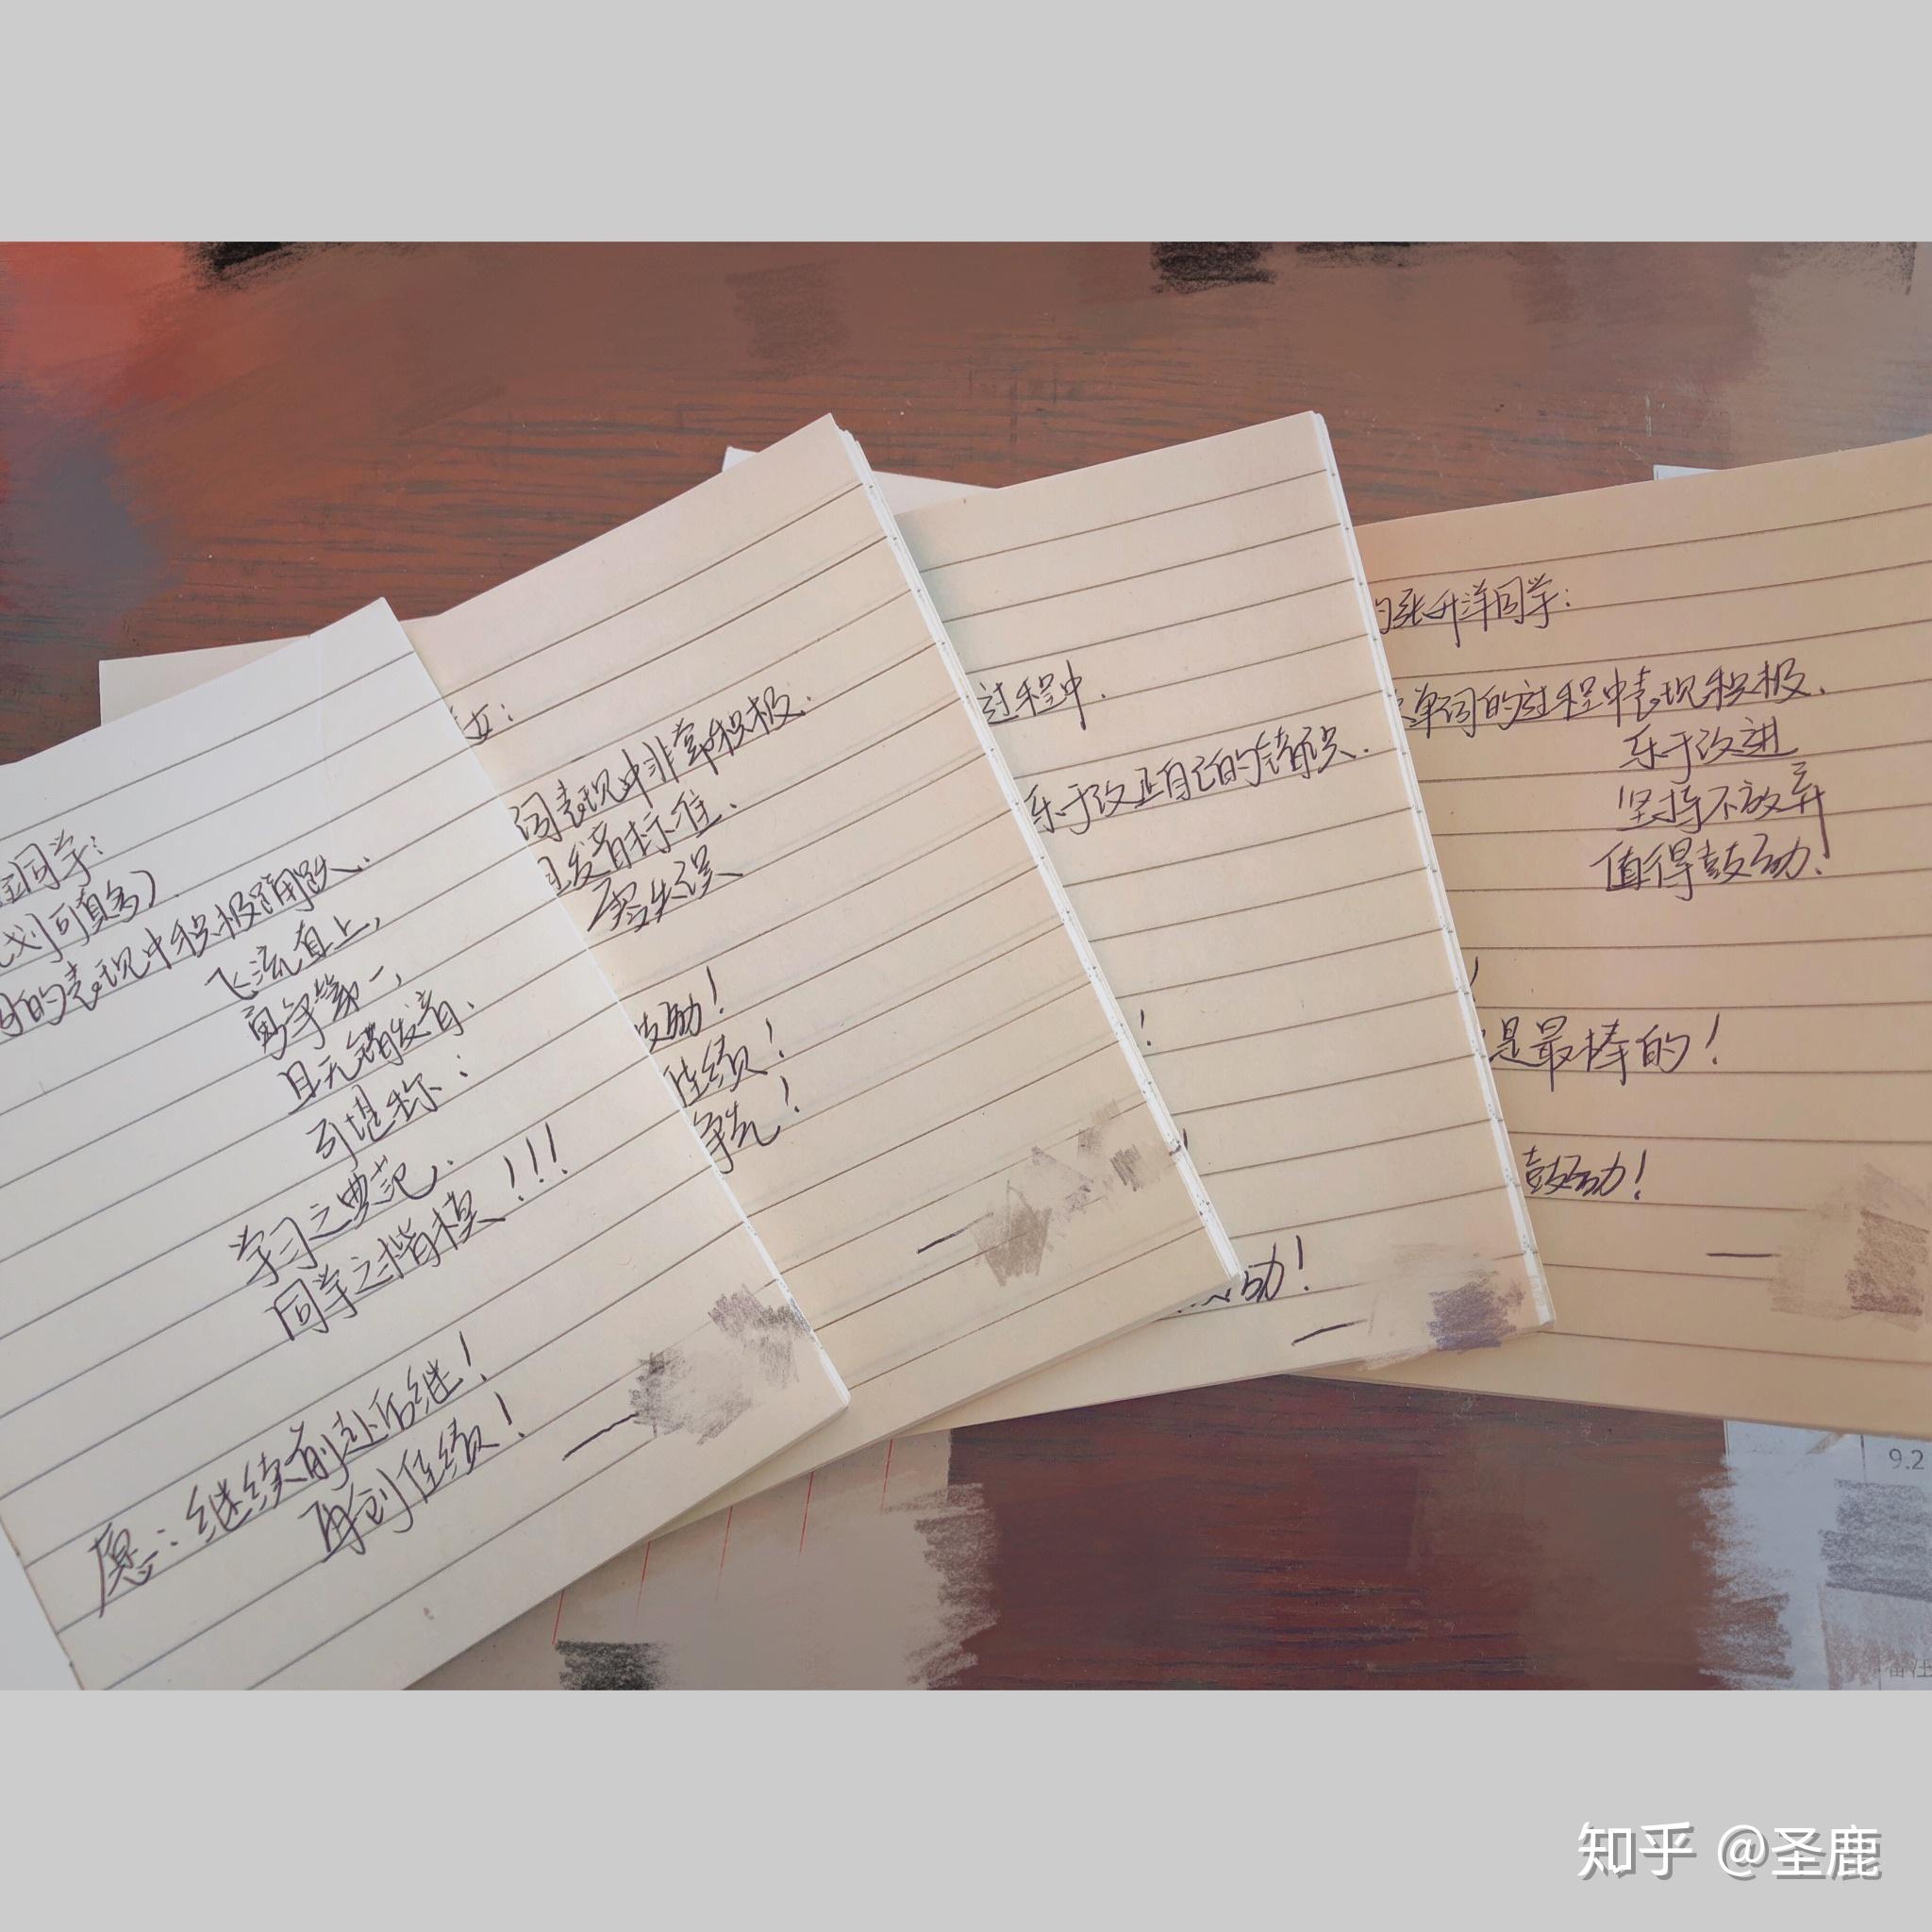 同学：
划可真多）
的表现中积极踊跃.
飞流直上,
勇争第一,
且无错发音.
可堪称：
学习之典范.
同学之楷模!!!
愿：继续前赴后继!
再创佳绩!
—
女：
词表现中非常积极.
且发音标准.
零失误
鼓励!
佳绩!
争先!
—
过程中.
乐于改正自己的错误.
!
励!
—
的张升洋同学：
单词的过程中表现积极.
乐于改进
坚持不放弃
值得鼓励.
是最棒的!
鼓励!
—
9.2
备注
知乎 @圣鹿